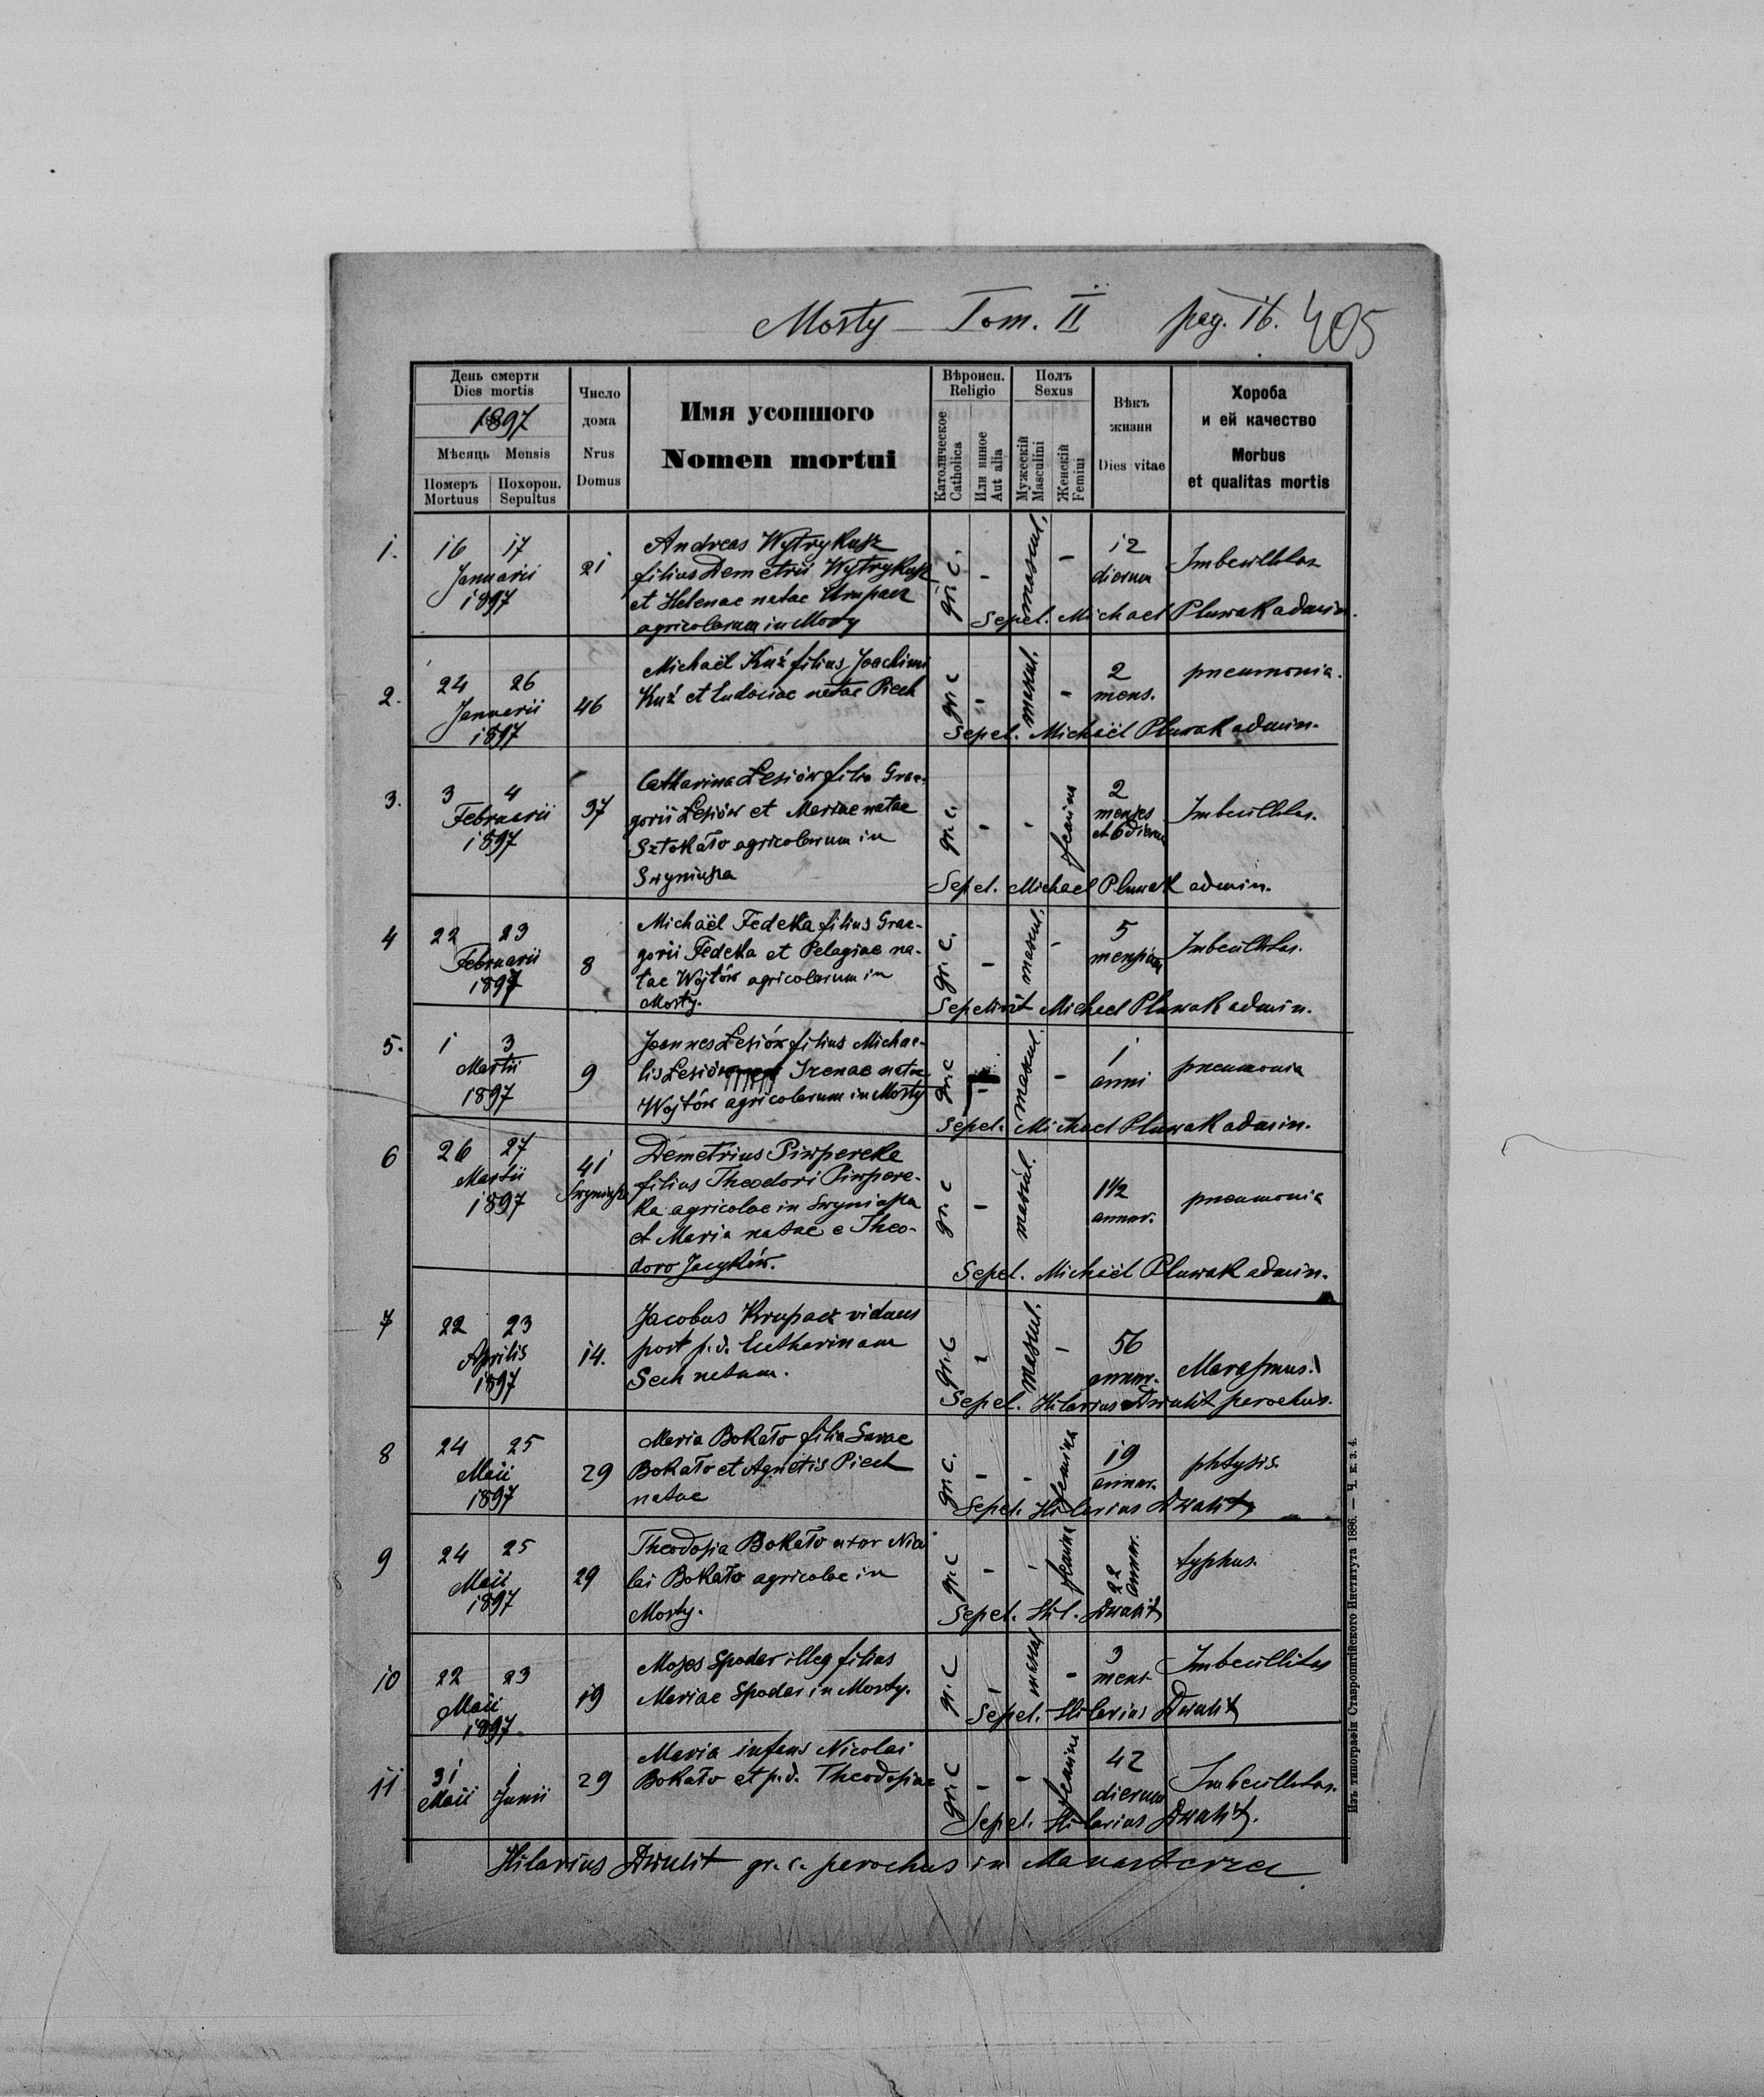 Morsty Tom. II pag. 16. 405
День смерти
Dies mortis
1897
Мѣсяць Mensis
Померъ Похорон.
Mortuus Sepultus
Число
дома
Nrus
Domus
Имя усопшого
Nomen mortui
Вѣроисп.
Religio
Католическое
Catholica
Или инное
Aut alia
Полъ
Sexus
Мужескій
Masculini
Женскій
Femini
Вѣкъ
жизни
Dies vitae
Хороба
и ей качество
Morbus
et qualitas mortis
1. 16 17
Januarii
1897
21
Andreas Wytrykusz
filius Demetrii Wytrykusz
et Helenae natae Krupacz
agricolarum in Mosty
gr. c. - mascul. -
12
dierum
Imbecillitas
Sepel. Michael Pluwak admin.
2. 24 26
Januarii
1897
46
Michaël Kuź filius Joachimi
Kuź et Eudociae natae Piech
gr. c - mascul. -
2
mens.
pneumonia.
Sepel. Michaël Pluwak admin.
3. 3 4
Februarii
1897
37
Catharina Lesiów filia Grae-
gorii Lesiów et Mariae natae
Sztokało agricolarum in
Swyniusza
gr. c. - - femina
2
menses
et 6 dierum
Imbecillitas.
Sepel. Michael Pluwak admin.
4 22 23
Februarii
1897
8
Michaël Fedeńka filius Grae-
gorii et Pelagiae na-
tae Wojtów agricolarum in
Mosty.
gr. c. - mascul. -
5
mensium
Imbecillitas.
Sepelivit Michael Pluwak admin.
5. 1 3
Martii
1897
9
Joannes Lesiów filius Michae-
lis Lesiów Irenae natae
Wojtów agricolarum in Mosty
gr. c - mascul. -
1
anni
pneumonia
Sepel. Michael Pluwak admin.
6 26 27
Martii
1897
41
Swyniusza
Demetrius Piwpereka
filius Theodori Piwpere-
ka agricolae in Swyniusza
et Maria natae e Theo-
doro Jacyków.
gr. c - mascul.
1 1/2
annor.
pneumonia
Sepel. Michaël Pluwak admin.
7 22 23
Aprilis
1897
14.
Jacobus Krupacz viduus
post p. d. Catharinam
Sech natam.
gr. c - mascul. -
56
annor.
Marasmus.
Sepel. Hilarius Dwulit parochus.
8 24 25
Maii
1897
29
Maria Bokało filia Savae
Bokało et Agnetis Piech
natae
gr. c. - - femina
19
annor.
phtysis.
Sepel. Hilarius Dwulit
9 24 25
Maii
1897
29
Theodosia Bokało uxor Nico
lai Bokało agricolae in
Mosty.
gr. c - - femina
22
annor.
typhus.
Sepel. Hil. Dwulit
10 22 23
Maii
1897
19
Moses Spodar illeg filius
Mariae Spodar in Mosty.
gr. C - mascul -
3
mens.
Imbecillitas
Sepel. Hilarius Dwulit
11 31 1
Maii Junii
29
Maria infans Nicolai
Bokało et p. d. Theodosiae
gr. C - - femina
42
dierum
Imbecillitas.
Sepel. Hilarius Dwulit.
Hilarius Dwulit gr. c. parochus in Manasterzec
Изъ типографіи Ставропигійского Института 1886. — Ч. к. з. 4.